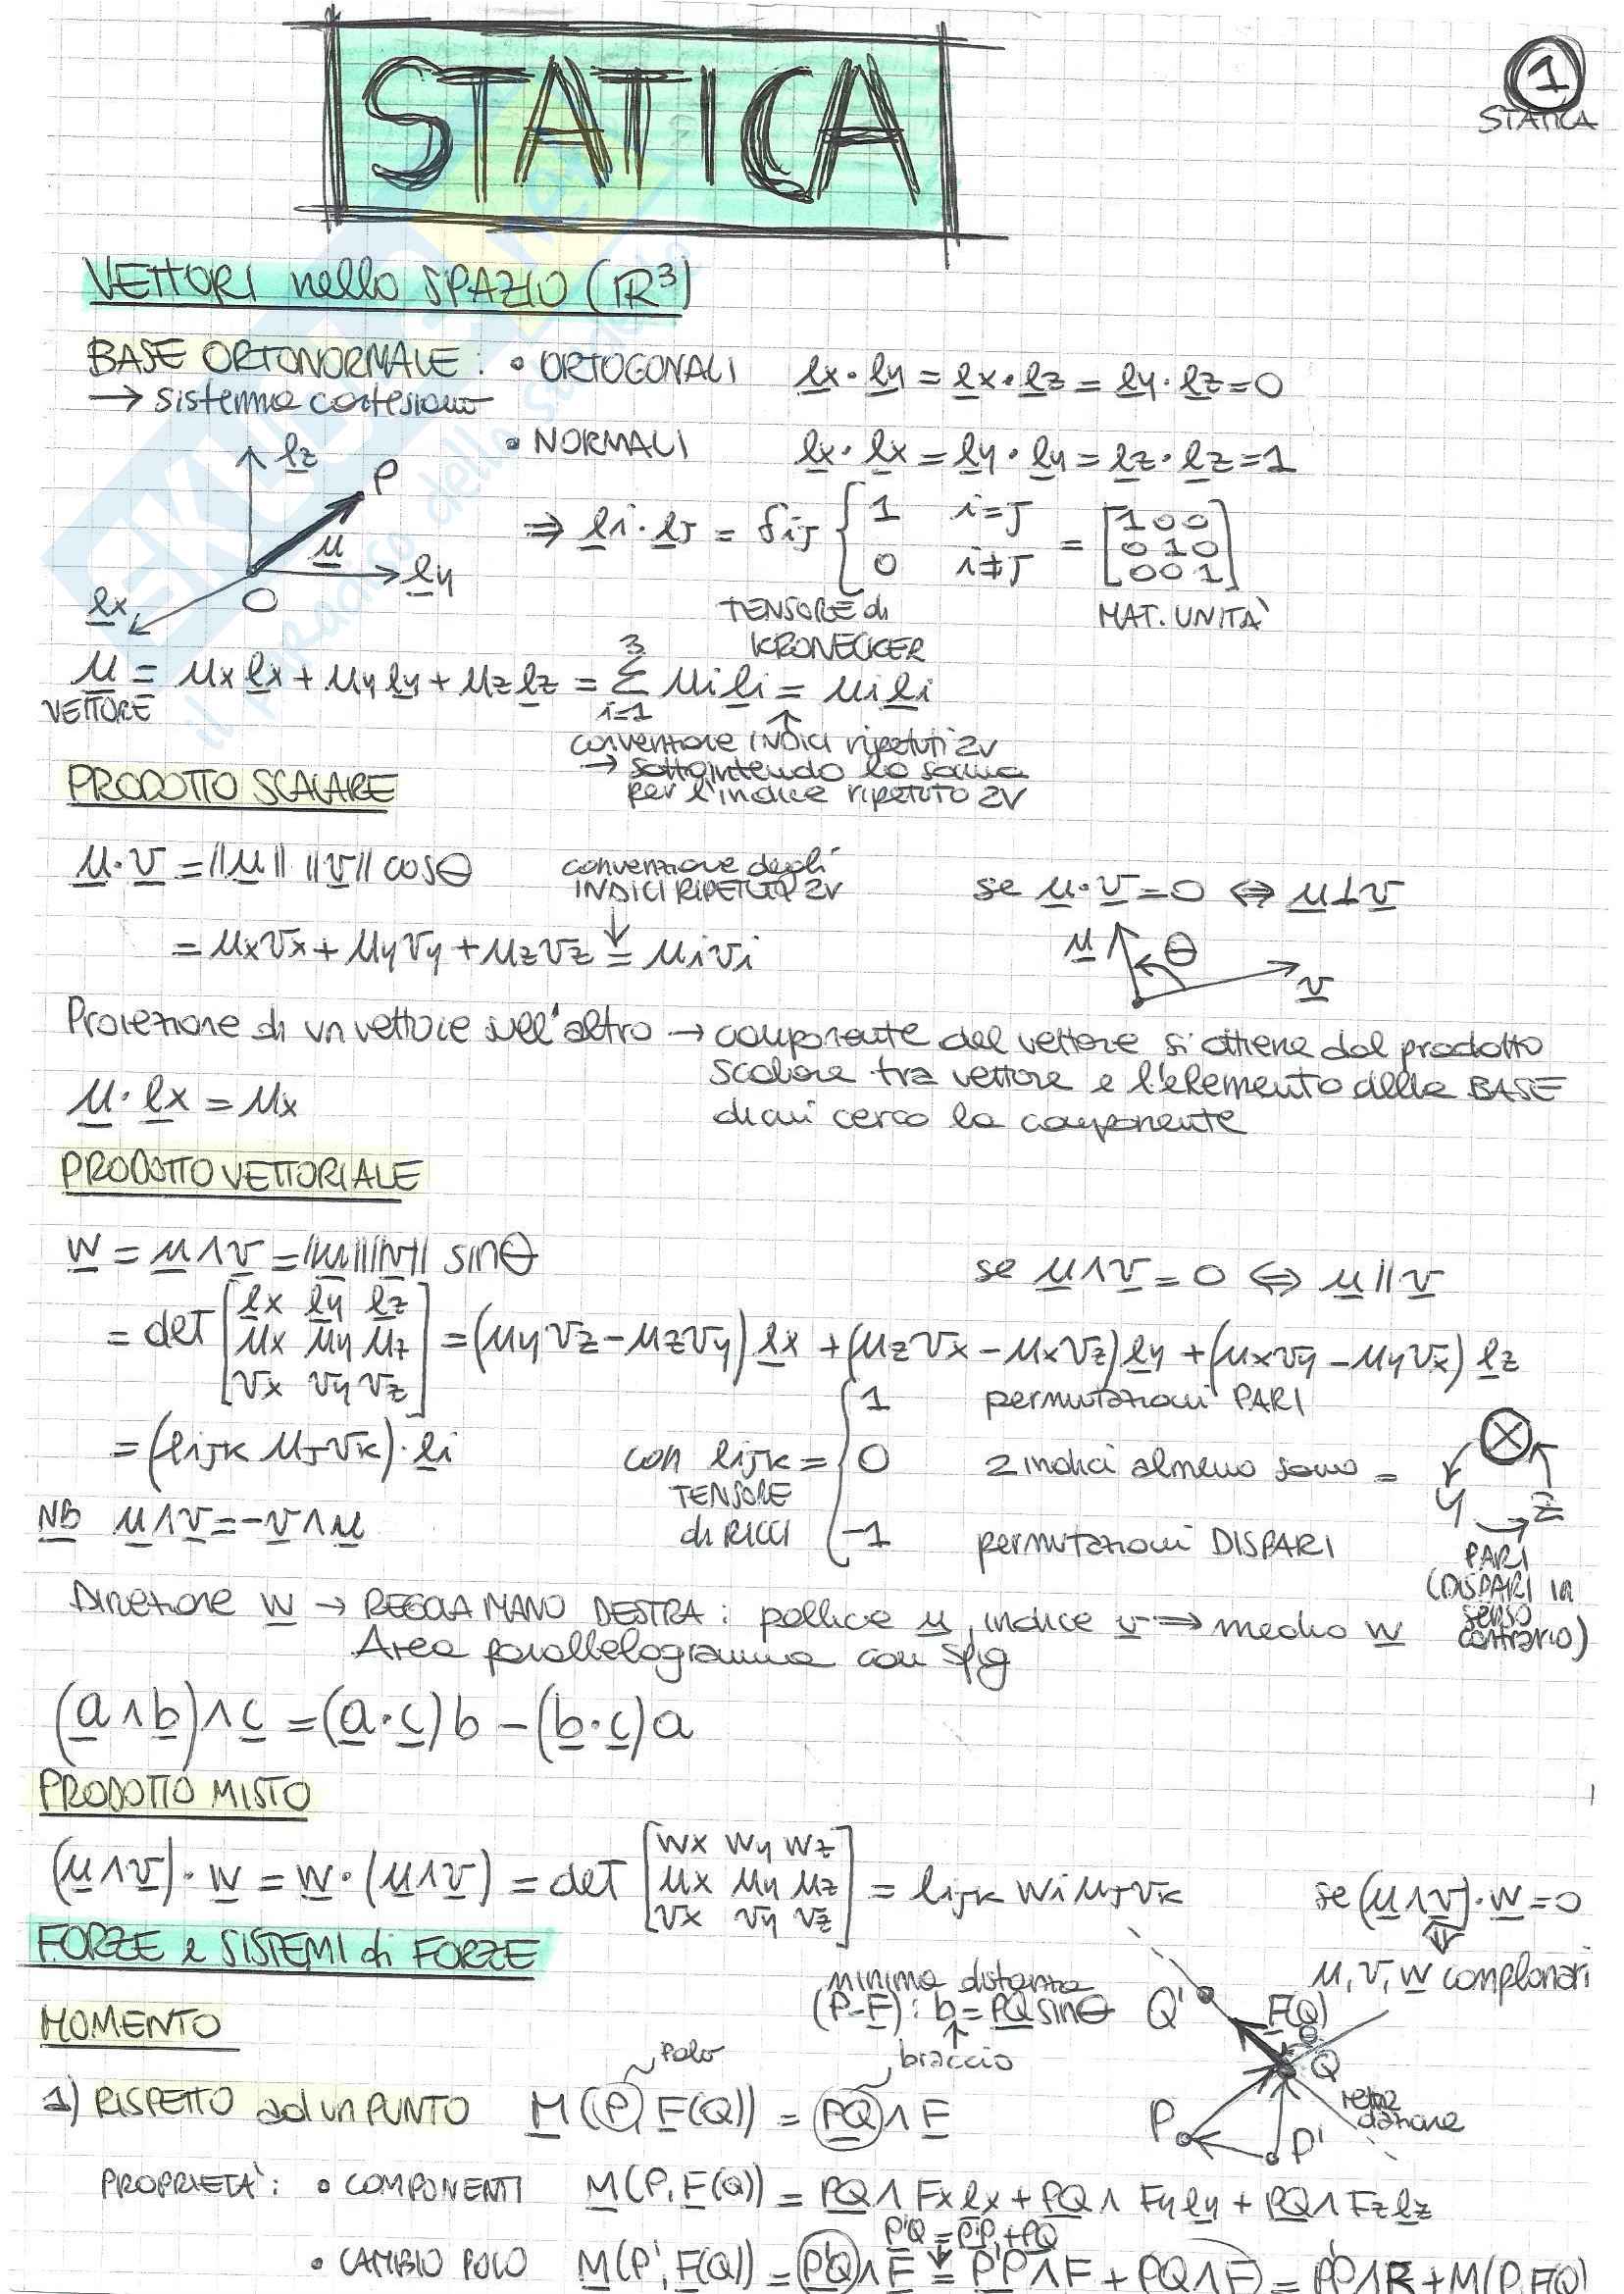 STATICA
1
STATICA
VETTORI nello SPAZIO (ℝ³)
BASE ORTONORMALE : • ORTOGONALI   e̲x · e̲y = e̲x · e̲z = e̲y · e̲z = 0
→ sistema cartesiano
• NORMALI   e̲x · e̲x = e̲y · e̲y = e̲z · e̲z = 1
e̲z
P
u̲
e̲y
e̲x
O
⇒ e̲i · e̲j = δij { 1   i=j
0   i≠j
= [1 0 0
0 1 0
0 0 1]
TENSORE di KRONECKER
MAT. UNITÀ
u̲ = ux e̲x + uy e̲y + uz e̲z = Σ³ᵢ₌₁ ui e̲i = ui e̲i
VETTORE
↑
convenzione INDICI ripetuti 2V
→ sottointendo la somma
per l'indice ripetuto 2V
PRODOTTO SCALARE
u̲ · v̲ = ||u̲|| ||v̲|| cosθ
convenzione degli
INDICI RIPETUTI 2V
↓
se u̲ · v̲ = 0 ⇔ u̲ ⊥ v̲
= ux vx + uy vy + uz vz = ui vi
u̲ θ v̲
Proiezione di un vettore sull'altro → componente del vettore si ottiene dal prodotto
scalare tra vettore e l'elemento della BASE
di cui cerco la componente
u̲ · e̲x = ux
PRODOTTO VETTORIALE
w̲ = u̲ ∧ v̲ = ||u̲|| ||v̲|| sinθ
se u̲ ∧ v̲ = 0 ⇔ u̲ // v̲
= det [e̲x e̲y e̲z
ux uy uz
vx vy vz] = (uy vz − uz vy) e̲x + (uz vx − ux vz) e̲y + (ux vy − uy vx) e̲z
= (eijk uj vk) · e̲i
con eijk = { 1   permutazioni PARI
0   2 indici almeno sono =
−1   permutazioni DISPARI
TENSORE
di RICCI
X
Y → Z
PARI
(DISPARI in
senso
contrario)
NB u̲ ∧ v̲ = −v̲ ∧ u̲
Direzione w̲ → REGOLA MANO DESTRA : pollice u̲, indice v̲ ⇒ medio w̲
Area parallelogramma con
(a̲ ∧ b̲) ∧ c̲ = (a̲ · c̲) b − (b̲ · c̲) a
PRODOTTO MISTO
(u̲ ∧ v̲) · w̲ = w̲ · (u̲ ∧ v̲) = det [wx wy wz
ux uy uz
vx vy vz] = eijk wi uj vk
se (u̲ ∧ v̲) · w̲ = 0
⇕
u, v, w̲ complanari
FORZE e SISTEMI di FORZE
minima distanza
(P−F̲) : b = P̲Q̲ sinθ
↑
braccio
Q'
F̲(Q)
θ
Q
retta
d'azione
P
P'
MOMENTO
polo
1) RISPETTO ad un PUNTO   M̲(P, F̲(Q)) = P̲Q̲ ∧ F̲
PROPRIETÀ : • COMPONENTI   M̲(P, F̲(Q)) = P̲Q̲ ∧ Fx e̲x + P̲Q̲ ∧ Fy e̲y + P̲Q̲ ∧ Fz e̲z
P'Q = P'P + PQ
• CAMBIO POLO   M̲(P', F̲(Q)) = P'Q ∧ F̲ = P'P ∧ F + PQ ∧ F = P'P ∧ R + M(P, F(Q)